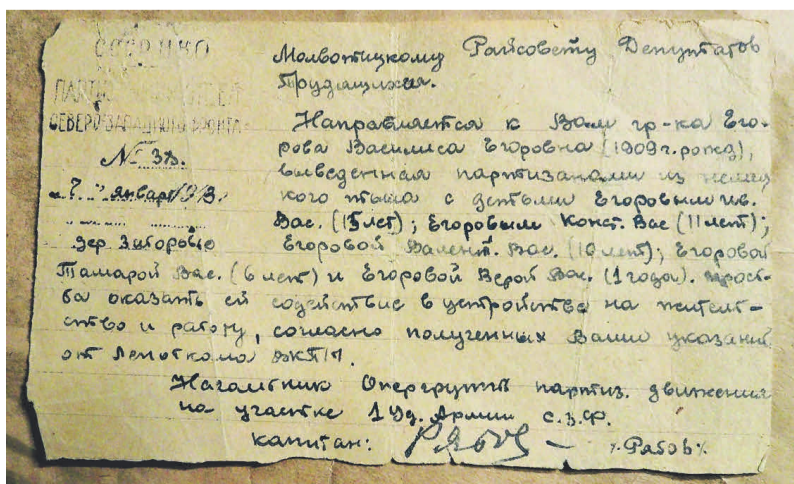 СССР НКО
ПАРТИ
СЕВЕРО-ЗАПАДНОГО ФРОНТА
№ 38.
"7" января 1943.
дер. Заборовье
Молвотицкому Райсовету Депутатов
Трудящихся.
Направляется к Вам гр-ка Его-
рова Василиса Егоровна (1909 г. рожд),
выведенная партизанами из немец
кого тыла с детьми Егоровым
Вас. (15 лет); Егоровым Конст. Вас (11 лет);
Егоровой Валент. Вас. (10 лет); Егоровой
Тамарой Вас. (6 лет) и Егоровой Верой Вас. (1 года). Прось-
ба оказать ей содействие в устройстве на житель-
ство и работу, согласно полученных Вами указаний
от ВКП/б.
Начальник Опергруппы партиз. движения
на участке 1 Уд. Армии С.З.Ф.
капитан: Рябов — /. Рябов /.